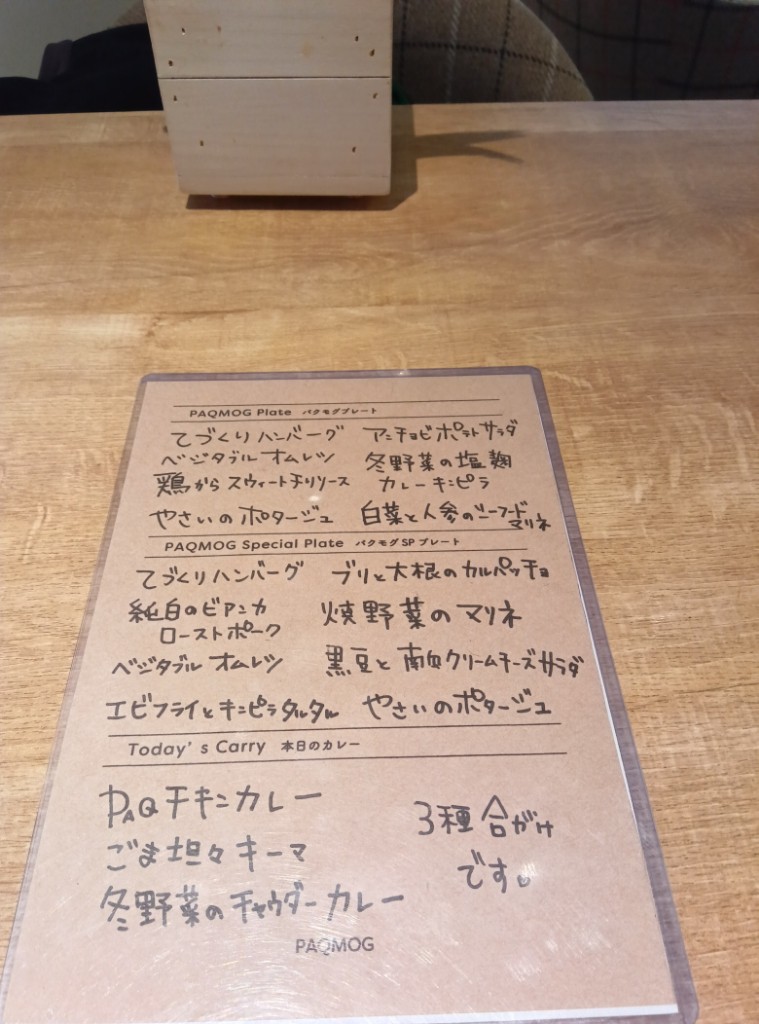 PAQMOG Plate パクモグプレート
てづくりハンバーグ
ベジタブルオムレツ
鶏から スウィートチリソース
やさいのポタージュ
アンチョビポテトサラダ
冬野菜の塩麹
カレーキンピラ
白菜と人参のシーフード
マリネ
PAQMOG Special Plate パクモグSPプレート
てづくりハンバーグ
純白のビアンカ
ローストポーク
ベジタブルオムレツ
エビフライとキンピラタルタル
ブリと大根のカルパッチョ
焼野菜のマリネ
黒豆と南瓜クリームチーズサラダ
やさいのポタージュ
Today's Carry 本日のカレー
PAQチキンカレー
ごま坦々キーマ
冬野菜のチャウダーカレー
3種合がけ
です。
PAQMOG